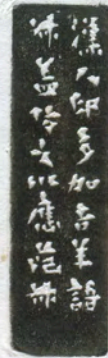 漢人印多加吉羊語
蓋文以應范